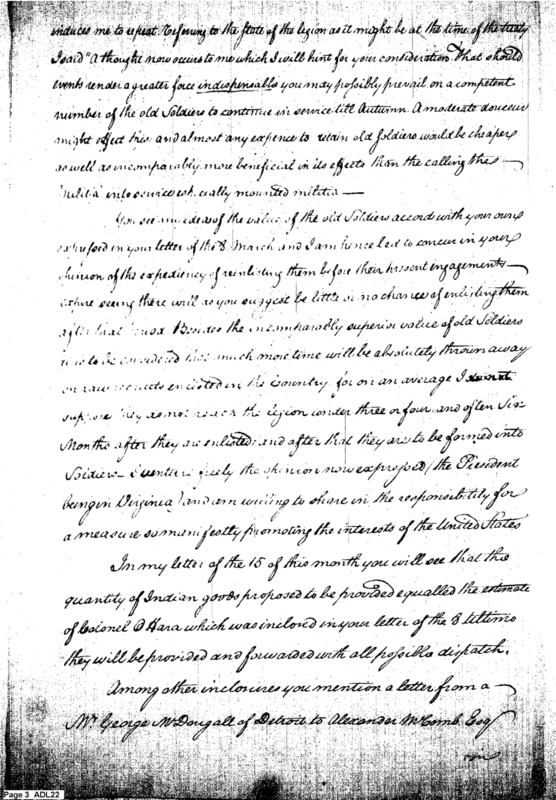 induces me to repeat. Referring to the state of the legion as it might be at the time of the treaty
I said "A thought now occurs to me which I will hint for your consideration that should
events render a greater force indispensable you may possibly prevail on a competent
number of the old Soldiers to continue in service till Autumn. A moderate douceur
might effect this and almost any expence to retain old Soldiers would be cheaper
as well as incomparably more beneficial in its effects than the calling the
Militia into service especially mounted militia —
You see my ideas of the value of the old Soldiers accord with your own
expressed in your letter of the 8 March and I am hence led to concur in your
opinion of the expediency of reinlisting them before their present engagements
expire seeing there will as you suggest be little or no chance of enlisting them
after that period Besides the incomparably superior value of old Soldiers
it is to be considered that much more time will be absolutely thrown away
on raw recruits enlisted in the Country, for on an average I
suppose they do not reach the legion under three or four, and often Six
Months after they are enlisted; and after that they are to be formed into
Soldiers — I venture freely the opinion now expressed (the President
being in Virginia) and am willing to share in the responsibility for
a measure so manifestly promoting the interests of the United States
In my letter of the 15 of this month you will see that the
quantity of Indian goods proposed to be provided equalled the estimate
of Colonel O Hara which was inclosed in your letter of the 8 ultimo
they will be provided and forwarded with all possible dispatch.
Among other inclosures you mention a letter from a
Mr. George McDougall of Detroit to Alexander McComb Esqr
Page 3 ADL22